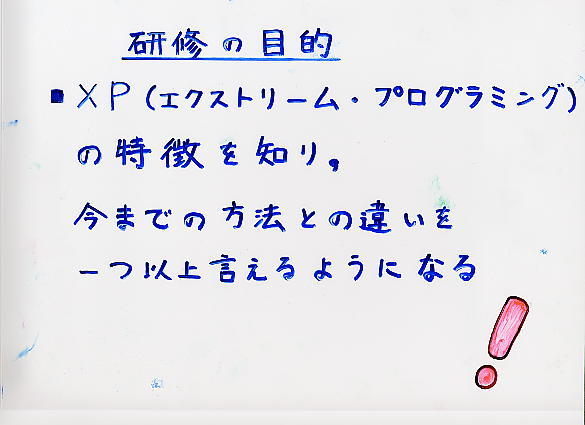 研修の目的
■ XP(エクストリーム・プログラミング)
の特徴を知り,
今までの方法との違いを
一つ以上言えるようになる
!